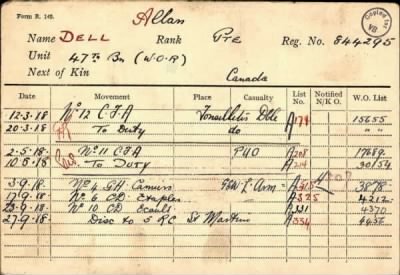 Form R. 149.
Allan
Name DELL Rank Pte Reg. No. 844295
Unit 47th Bn (W.O.R)
Next of Kin Canada
Date Movement Place Casualty List No. Notified N/K O. W.O. List
12-3-18 No 12 C.F.A Dble A179 15655
20-3.18 To Duty do " "
2-5-18. No 11 CFA PUO A208 17689
10.5.18 To Duty A214 30/54
3-9-18. No 4 GH Camiers GSW L. Arm = A315 3878
No 6 CD. Etaples A325 4212
9.18. No 10 CD Ecault A331 4370
27-9.18. Disc to 5 RC St Martins A334 4456